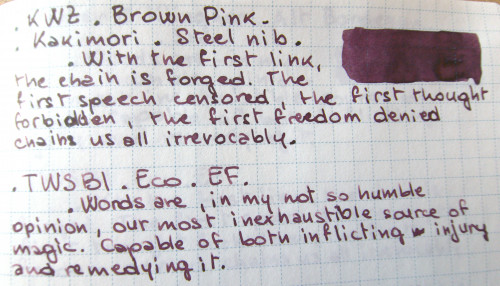 . KWZ . Brown Pink .
. Kakimori . Steel nib .
. With the first link,
the chain is forged. The
first speech censored, the first thought
forbidden, the first freedom denied
chains us all irrevocably.
. TWSBI . Eco . EF.
. Words are, in my not so humble
opinion, our most inexhaustible source of
magic. Capable of both inflicting injury
and remedying it.